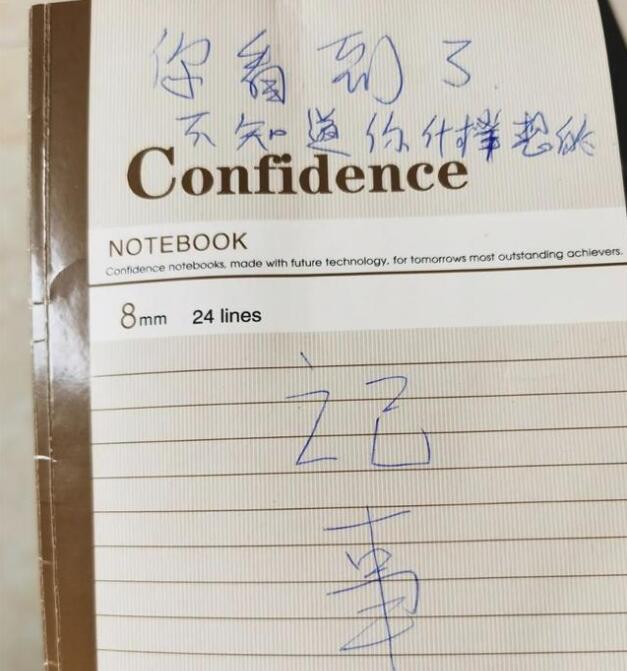 你看到了
不知道你什样想的
Confidence
NOTEBOOK
Confidence notebooks, made with future technology, for tomorrows most outstanding achievers.
8mm 24 lines
记
事